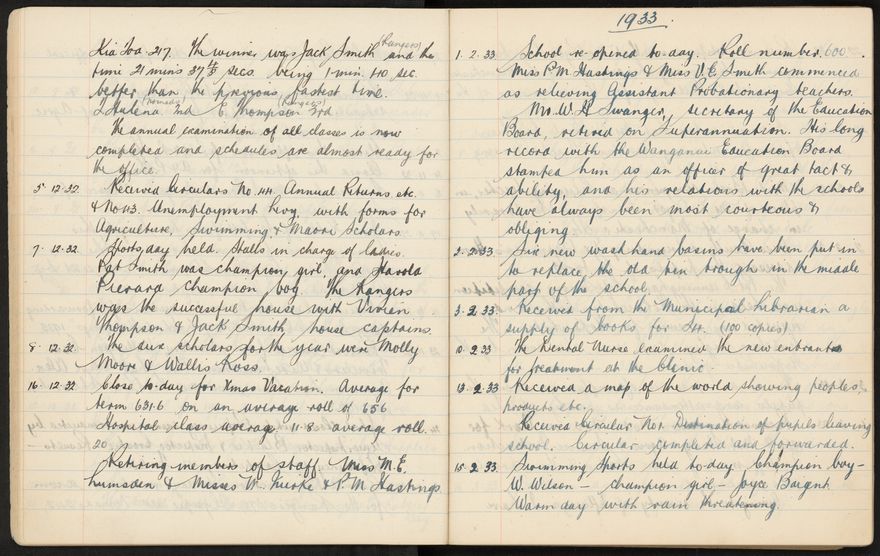 Kia Toa. 217. The winner was Jack Smith (Rangers) and the
time 21 mins 37 4/5 secs. being 1 min. 40 sec.
better than the previous fastest time.
L Hulena (Nomads) 2nd E. Thompson (Rangers) 3rd
The annual examination of all classes is now
completed and schedules are almost ready for
the office.
5. 12. 32. Received Circulars No. 44. Annual Returns etc.
& No 43. Unemployment Levy. with forms for
Agriculture, Swimming & Maori Scholars.
7. 12. 32. Sports day held. Stalls in charge of ladies.
Pat Smith was champion girl, and Harold
Pierard Champion boy. The Rangers
was the successful house with Vivian
Thompson & Jack Smith house captains.
8. 12. 32. The dux scholars for the year were Molly
Moore & Wallis Ross.
16. 12. 32 Close to-day for Xmas Vacation. Average for
term 631.6 on an average roll of 656
Hospital class average 11.8 average roll.
20
Retiring members of staff. Miss M. E.
Lumsden & Misses N. & P. M Hastings.
1933.
1. 2. 33 School re-opened to-day. Roll number. 600.
Miss P. M. Hastings & Miss V. E. Smith commenced
as relieving Assistant Probationary teachers.
Mr. W. H Swanger, secretary of the Education
Board, retired on Superannuation. His long
record with the Wanganui Education Board
stamped him as an officer of great tact &
ability, and his relations with the schools
have always been most courteous &
obliging.
2. 2. 33 Six new wash hand basins have been put in
to replace the old tin trough in the middle
part of the school
3. 2. 33 Received from the Municipal Librarian a
supply of books for S4. (100 copies)
10. 2. 33 The Dental Nurse examined the new entrants
for treatment at the Clinic.
13. 2. 33 Received a map of the world showing peoples
products etc.
Received Circular No1. Destination of pupils leaving
school. Circular completed and forwarded.
15. 2. 33 Swimming Sports held to-day. Champion boy -
W. Wilson - champion girl - Joyce Bargh
Warm day with rain threatening.